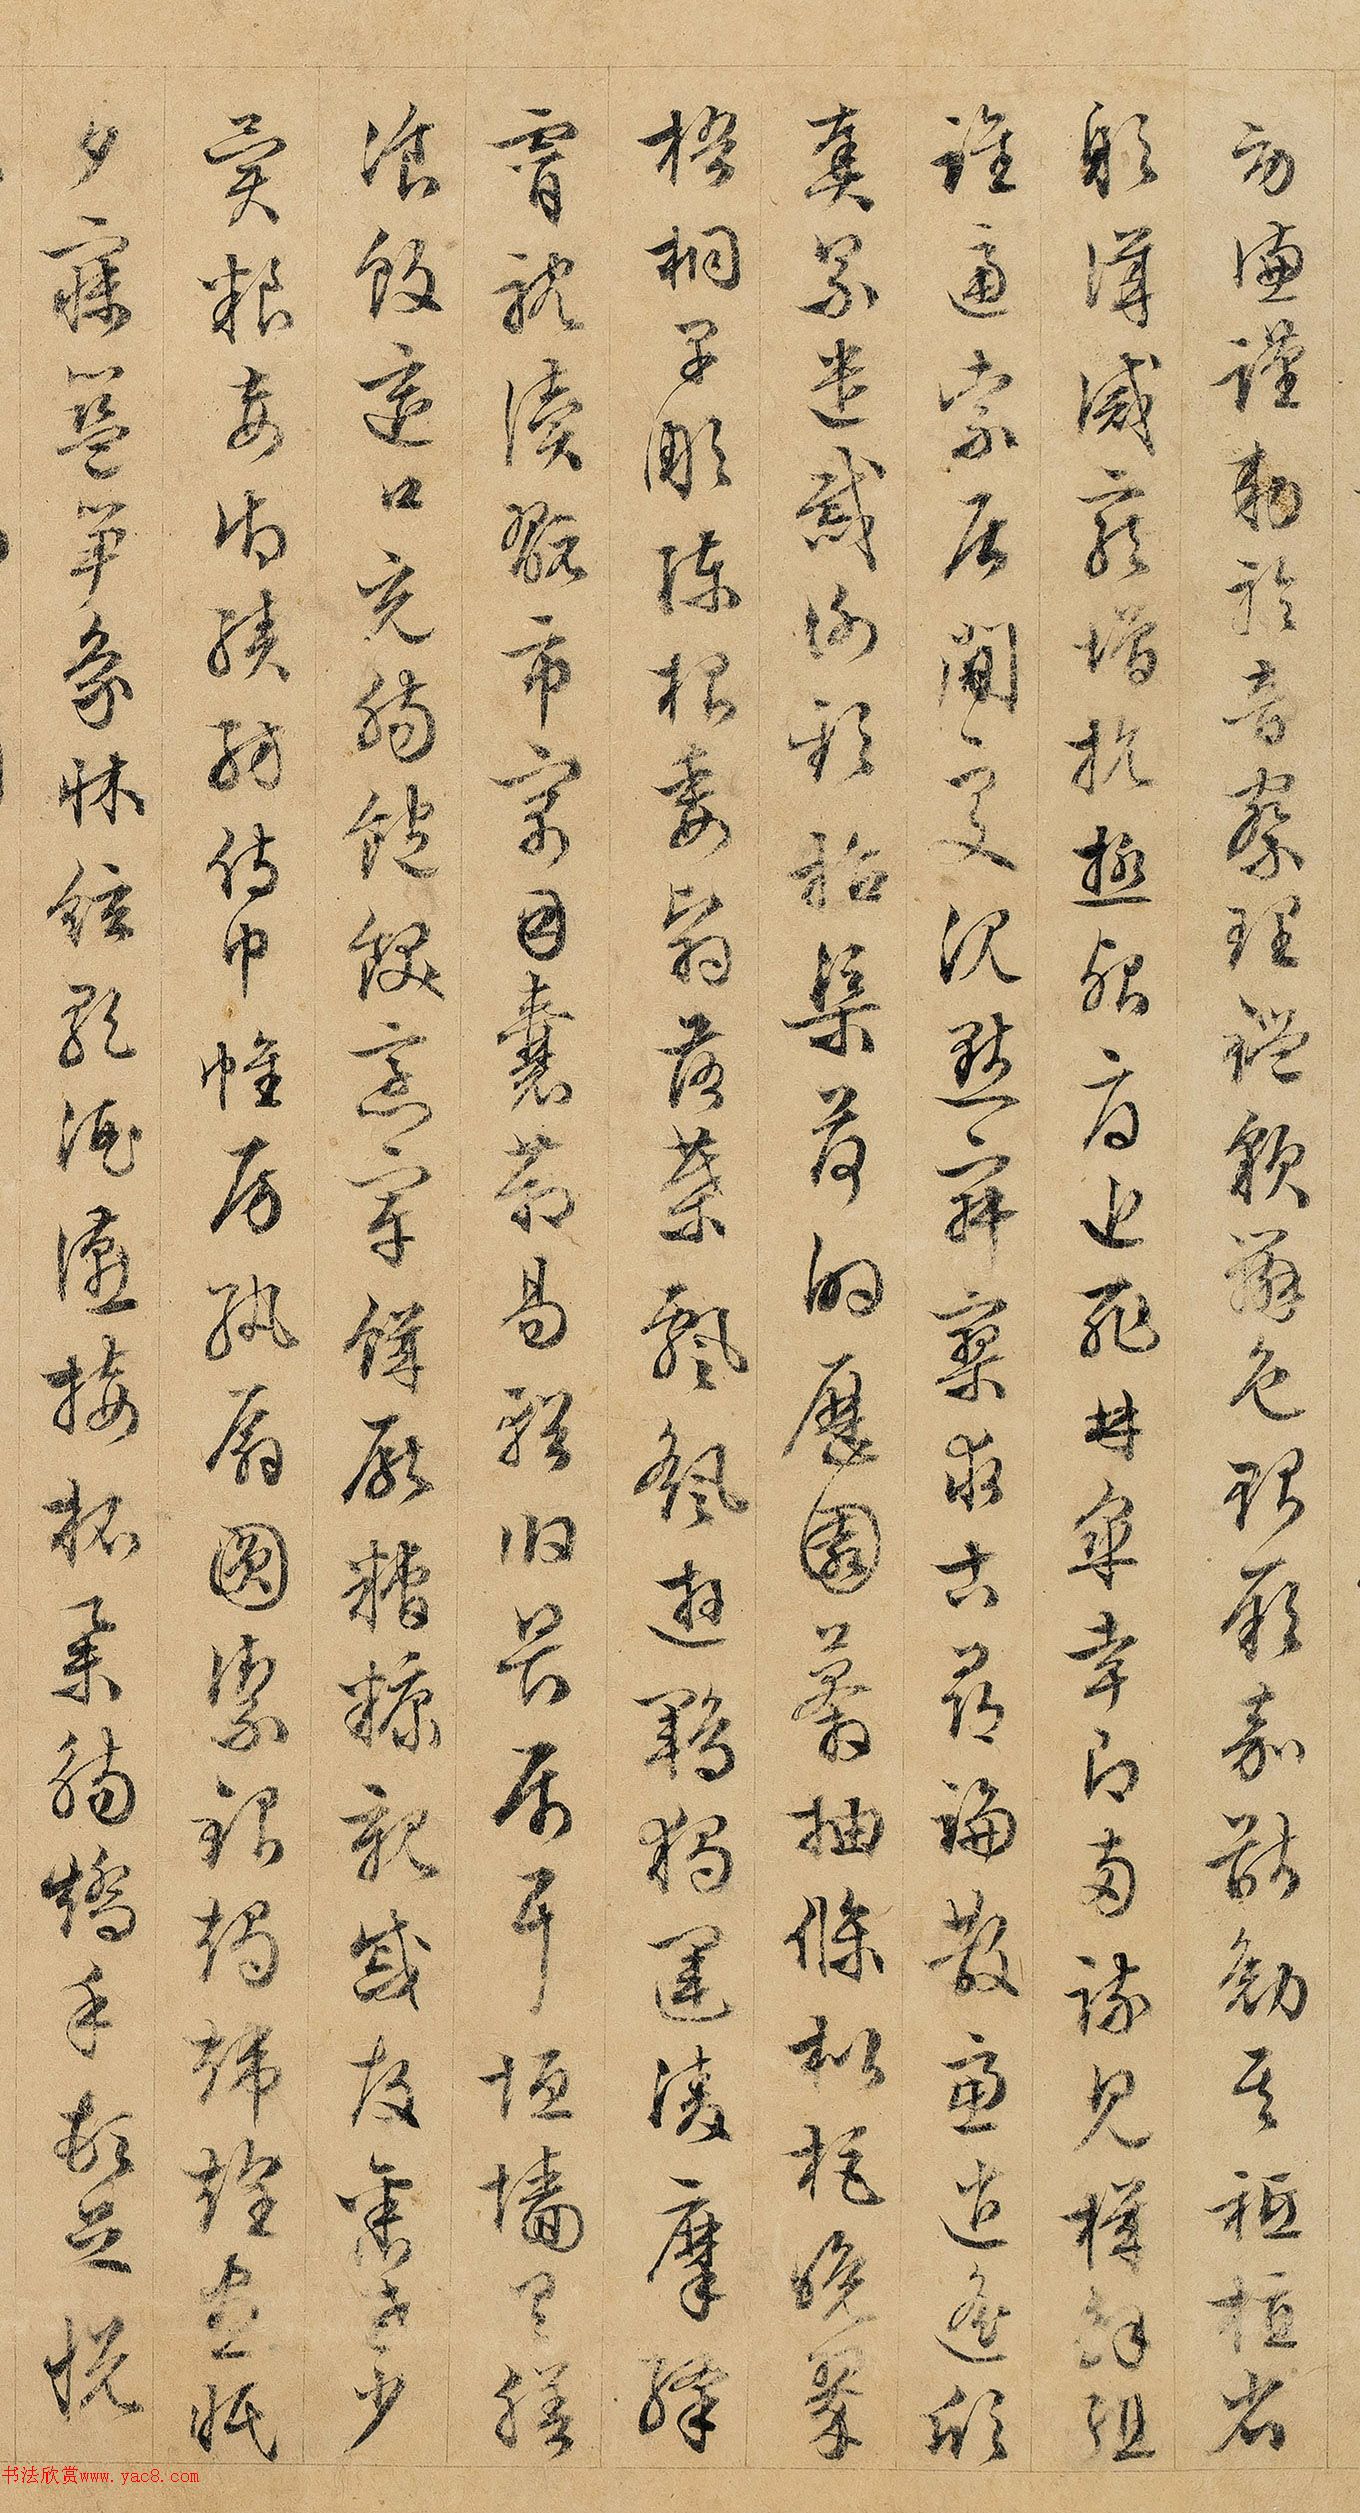 勞謙謹敕聆音察理鑑貌辨色貽厥嘉猷勉其祗植省
躬譏誡寵增抗極殆辱近恥林皋幸即兩疏見機解組
誰逼索居閒處沉默寂寥求古尋論散慮逍遙欣
奏累遣慼謝歡招渠荷的歷園莽抽條枇杷晚翠
梧桐早彫陳根委翳落葉飄颻遊鵾獨運凌摩絳
霄耽讀翫市寓目囊箱易輶攸畏屬耳垣牆具膳
飡飯適口充腸飽飫烹宰飢厭糟糠親戚故舊老少
異糧妾御績紡侍巾帷房紈扇圓潔銀燭煒煌晝眠
夕寐籃笋象床絃歌酒讌接杯舉觴矯手頓足悅
书法欣赏www.yac8.com